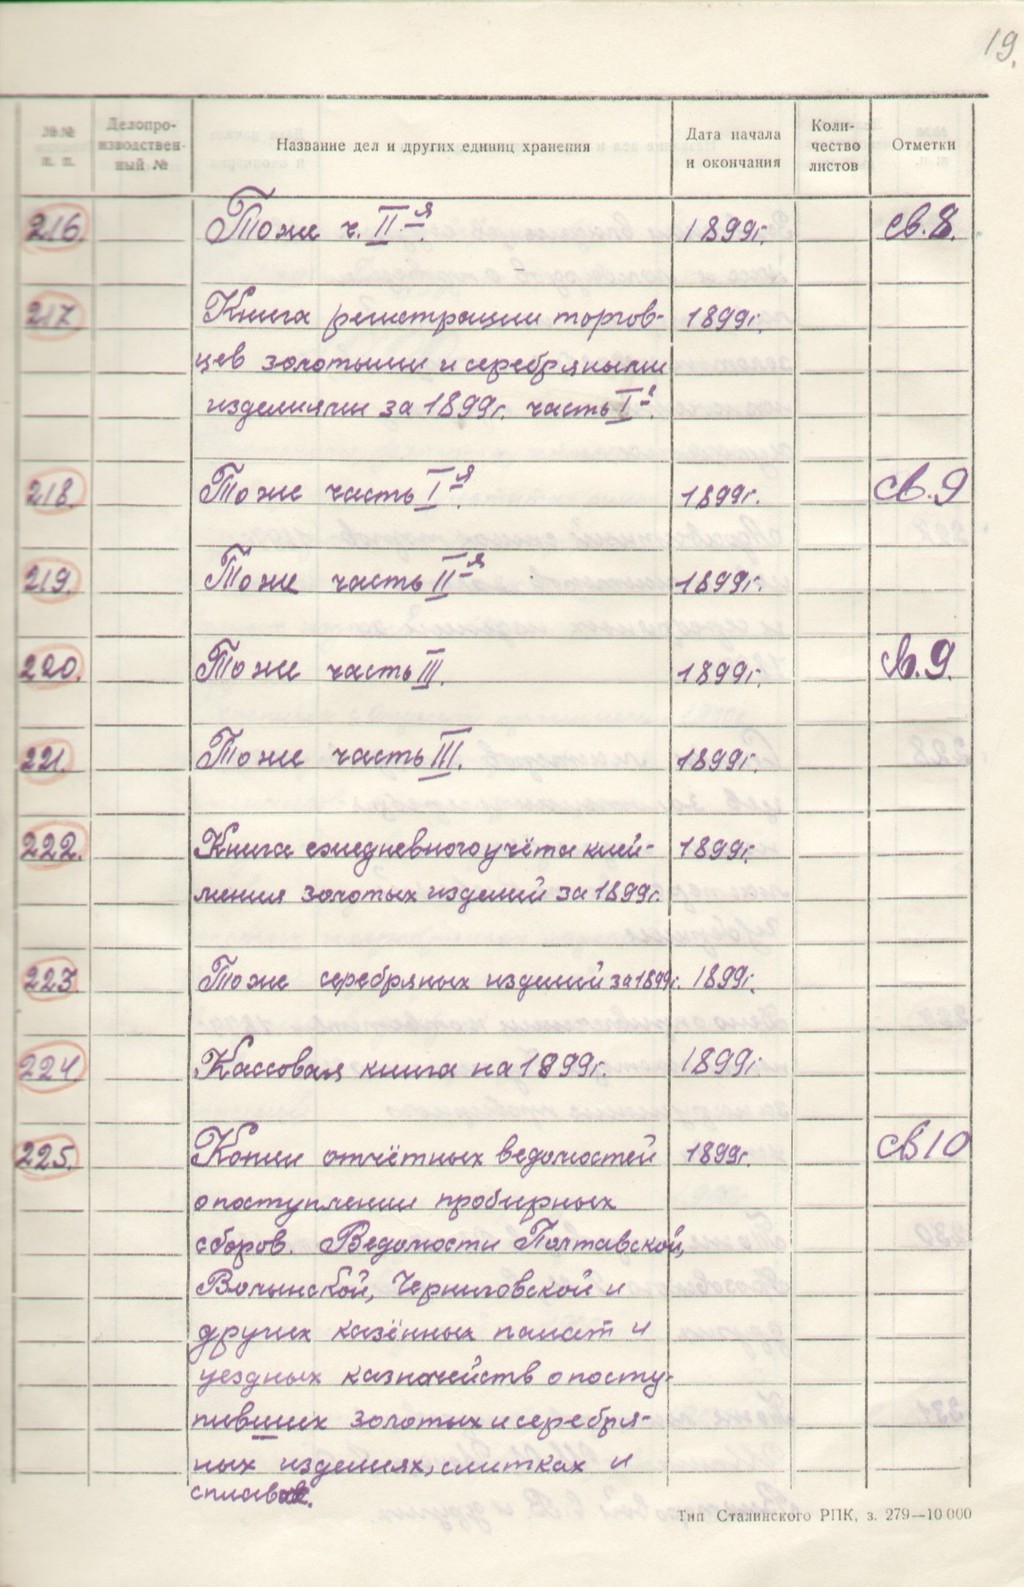 19.
№№ п. п.
Делопро-
изводствен-
ный №
Название дел и других единиц хранения
Дата начала
и окончания
Коли-
чество
листов
Отметки
216. Тоже ч. II-я. 1899г. св.8.
217. Книга регистрации торгов- 1899г.
цев золотыми и серебряными
изделиями за 1899г. часть I-я.
218. Тоже часть I-я. 1899г. св.9
219. Тоже часть II-я 1899г.
220. Тоже часть III. 1899г. св.9.
221. Тоже часть III. 1899г.
222. Книга ежедневного учёта клей- 1899г.
мения золотых изделий за 1899г.
223. Тоже серебряных изделий за 1899г. 1899г.
224. Кассовая книга на 1899г. 1899г.
225. Копии отчётных ведомостей 1899г. св10
о поступлении пробирных
сборов. Ведомости Полтавской,
Волынской, Черниговской и
других казённых палат и
уездных казначейств о посту-
пивших золотых и серебря-
ных изделиях, слитках и
сплавах.
Тип Сталинского РПК, з. 279—10 000